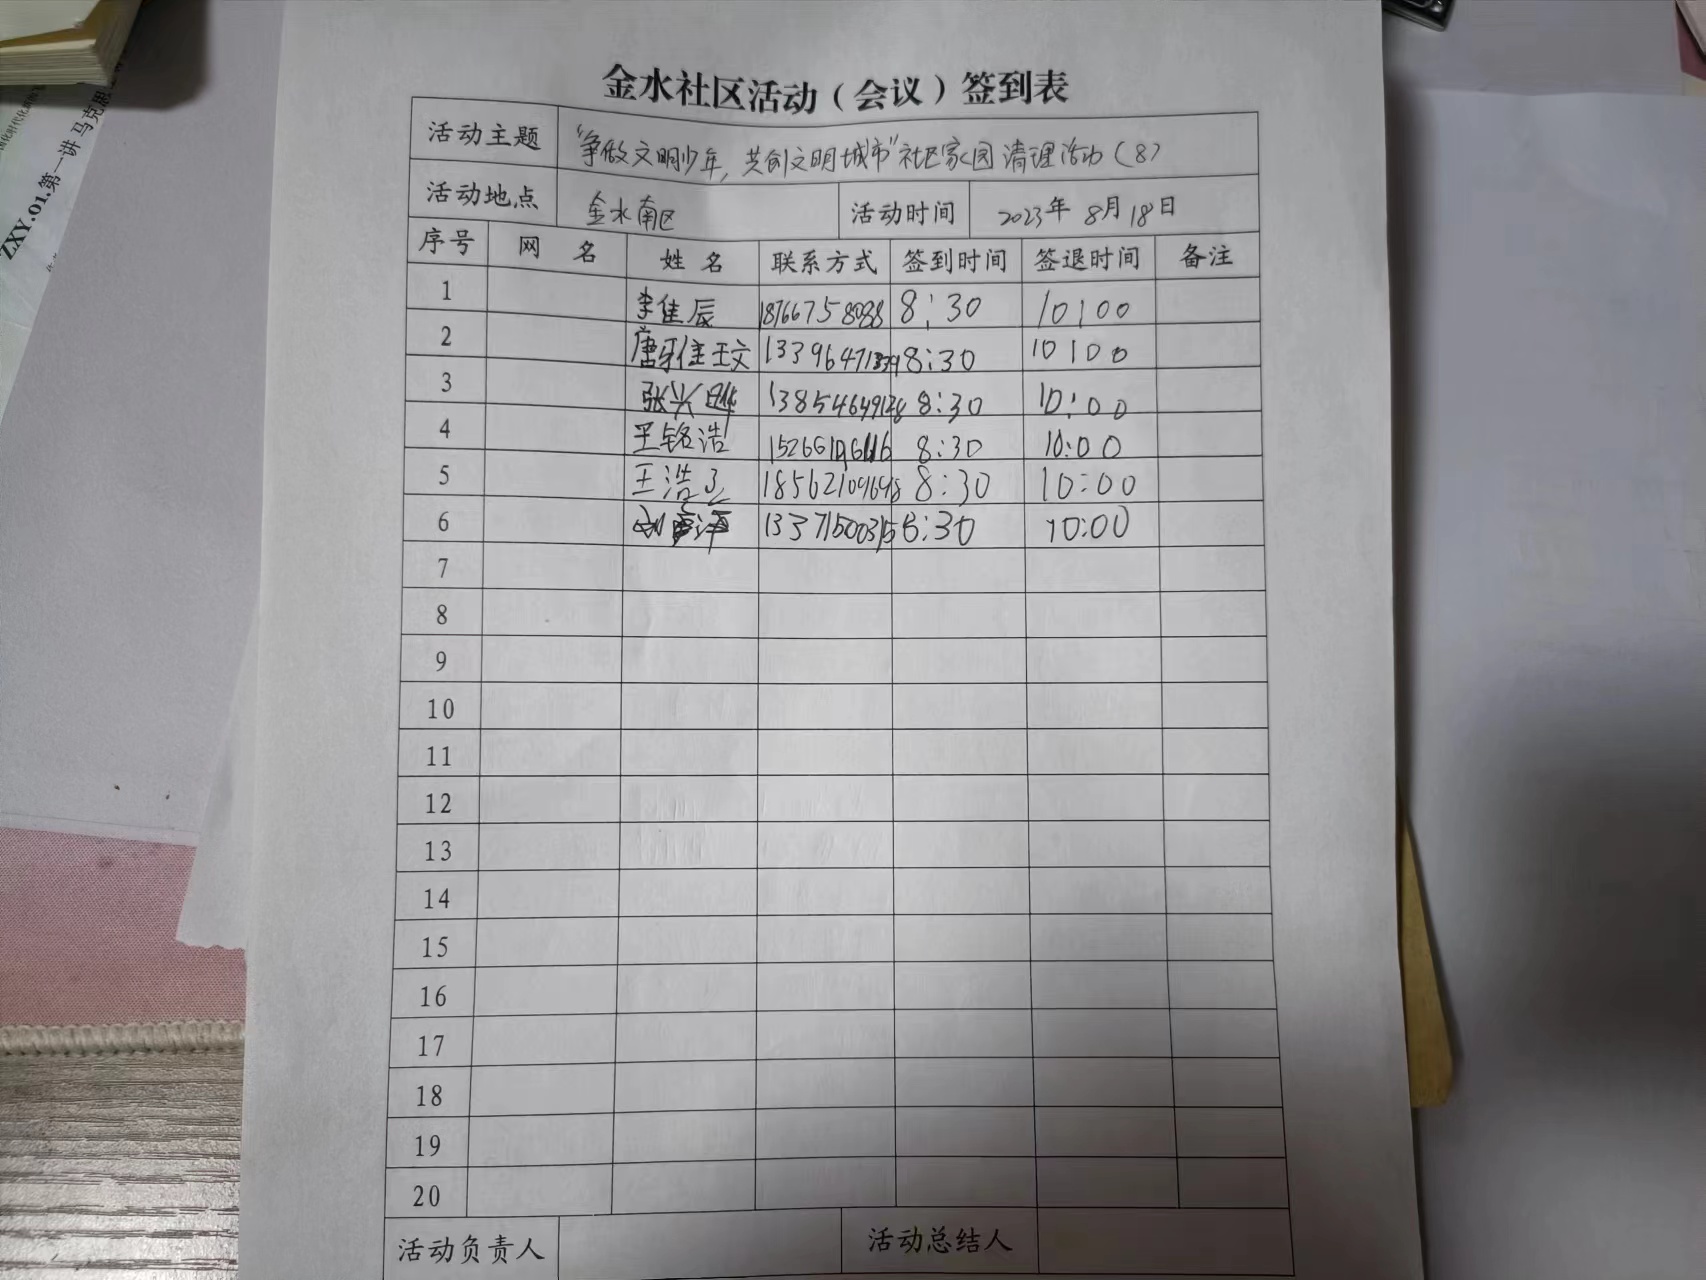 金水社区活动（会议）签到表
活动主题 "争做文明少年，共创文明城市"社区家园清理活动（8）
活动地点 金水南区 活动时间 2023年8月18日
序号 网 名 姓 名 联系方式 签到时间 签退时间 备注
1 李佳辰 8:30 10:00
2 8:30 10:00
3 8:30 10:00
4 王铭浩 8:30 10:00
5 王浩 8:30 10:00
6 8:30 10:00
7
8
9
10
11
12
13
14
15
16
17
18
19
20
活动负责人 活动总结人
ZXY.01.第一讲 马克思